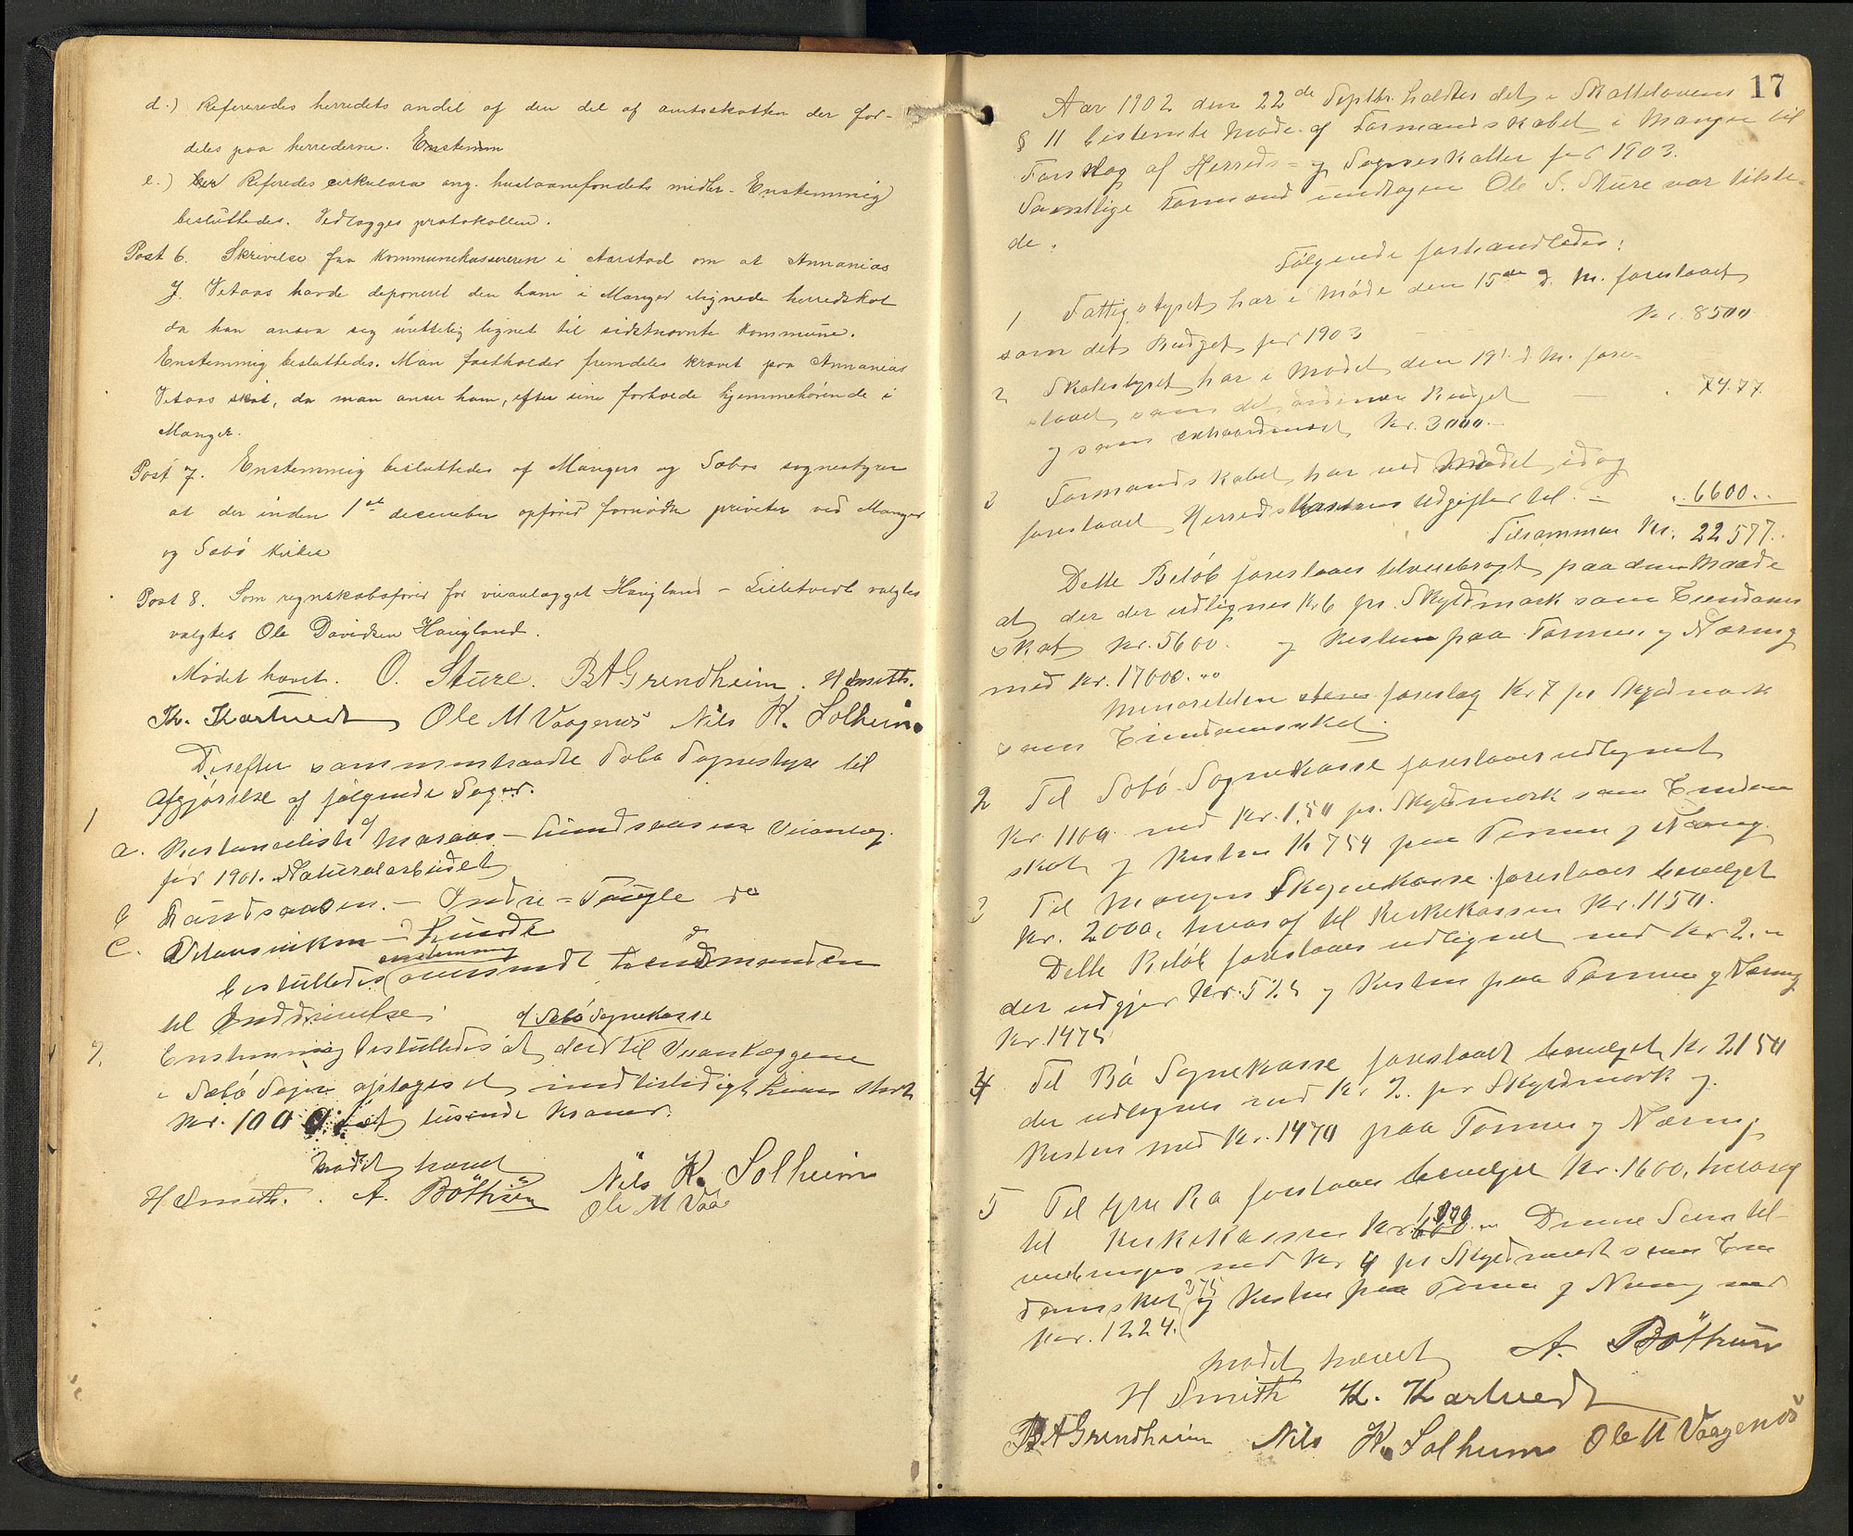 d.) Refereredes herredets andel af den del af amtsskatten der for-
deles paa herrederne. Enstemm
e.) Referedes cirkulære ang. huslaanefondets midler. Enstemmig
besluttedes. Vedlægges protokollen.
Post 6. Skrivelse fra kommunekassereren i Aarstad om at Annanias
J. Vetaas havde deponeret den ham i Manger ilignede herredskat
da han ansaa sig urettelig lignet til sidstnævnte kommune.
Enstemmig besluttedes. Man fastholder fremdeles kravet paa Annanias
Vetaas skat, da man anser ham, efter sine forhold hjemmehørende i
Manger.
Post 7. Enstemmig besluttedes af Mangers og Sæbø sognestyrer
at der inden 1ste december opføres fornødne priveter ved Manger
og Sæbø kirker
Post 8. Som regnskabsfører for veianlægget Haugland - Lilletvedt valgtes
valgtes Ole Davidsen Haugland.
Mødet hævet. O. Sture. B A Grendheim. H Smith.
K. Kartvedt Ole M Vaagenes Nils K. Solheim
Derefter sammentraadte Sæbø Sognestyre til
Afgjørelse af følgende Sager.
1
a. Restanceliste af Maraas - Lundsaasen Veianlæg
for 1901. Naturalarbeidet
b Lundsaasen - Indre - Fugle do
C. - Lunde do
enstemmig
besluttedes oversendt Lensmanden
til Inddrivelse.
af Sæbø Sognekasse
2. Enstemmig besluttedes at der til Veianlæggene
i Sæbø Sogn optages et midlertidigt Laan stort
Kr. 1000 et tusende Kroner.
Mødet hævet Nils K. Solheim
H Smith. A. Bøthun Ole M Vaa
17
Aar 1902 den 22de Septbr. holdtes det i Skattelovens
§ 11 bestemte Møde af Formandskabet i Manger til
Forslag af Herreds- og Sogneskatter for 1903.
Samtlige Formænd undtagen Ole S. Sture var tilste-
de.
Følgende forhandledes:
1 Fattigstyret har i Møde den 15de d. M. foreslaaet
som dets Budget for 1903 - - Kr. 8500
2 Skolestyret har i Mødet den 19. d. M. fore-
slaaet som det ordinære Budget - . 7477.
og som extraordinært Kr. 3000.-
3 Formandskabet har ved Mødet idag
foreslaaet Herredskassens Udgifter til - . 6600..
Tilsammen Kr. 22577.
Dette Beløb foreslaaes tilveiebragt paa den Maade
at der udlignes Kr 6 pr. Skyldmark som Eiendoms
skat Kr. 5600. og Resten paa Formue og Næring
med Kr. 17000.
Minoriteten foreslog Kr 7 pr Skyldmark
som Eiendomsskat.
2 Til Sæbø Sognekasse foreslaaes udlignet
Kr 1100 med Kr. 1,50 pr. Skyldmark som Eiendom
skat og Resten K 754 paa Formue og Næring.
3 Til Mangers Sognekasse foreslaaes bevilget
Kr. 2000, hvoraf til Kirkekassen Kr. 1150.
Dette Beløb foreslaaes udlignet med Kr 2.
der udgjør Kr. 525 og Resten paa Formue og Næring
Kr. 1475
4 Til Bø Sognekasse foreslaaet bevilget Kr 2150
der udlignes med Kr 2. pr Skyldmark og
Resten med Kr. 1470 paa Formue og Næring.
5 Til Hræ Ra foreslaaes bevilget Kr. 1600, hvoraf
til Kirkekassen Kr. 1000 Denne Sum til
veiebringes med Kr 4 pr Skyldmark som Eien
domsskat 375 og Resten paa Formue og Næring med
Kr. 1224.
Mødet hævet A. Bøthun
H Smith K. Kartvedt
B A Grendheim Nils K. Solheim Ole M Vaagenes